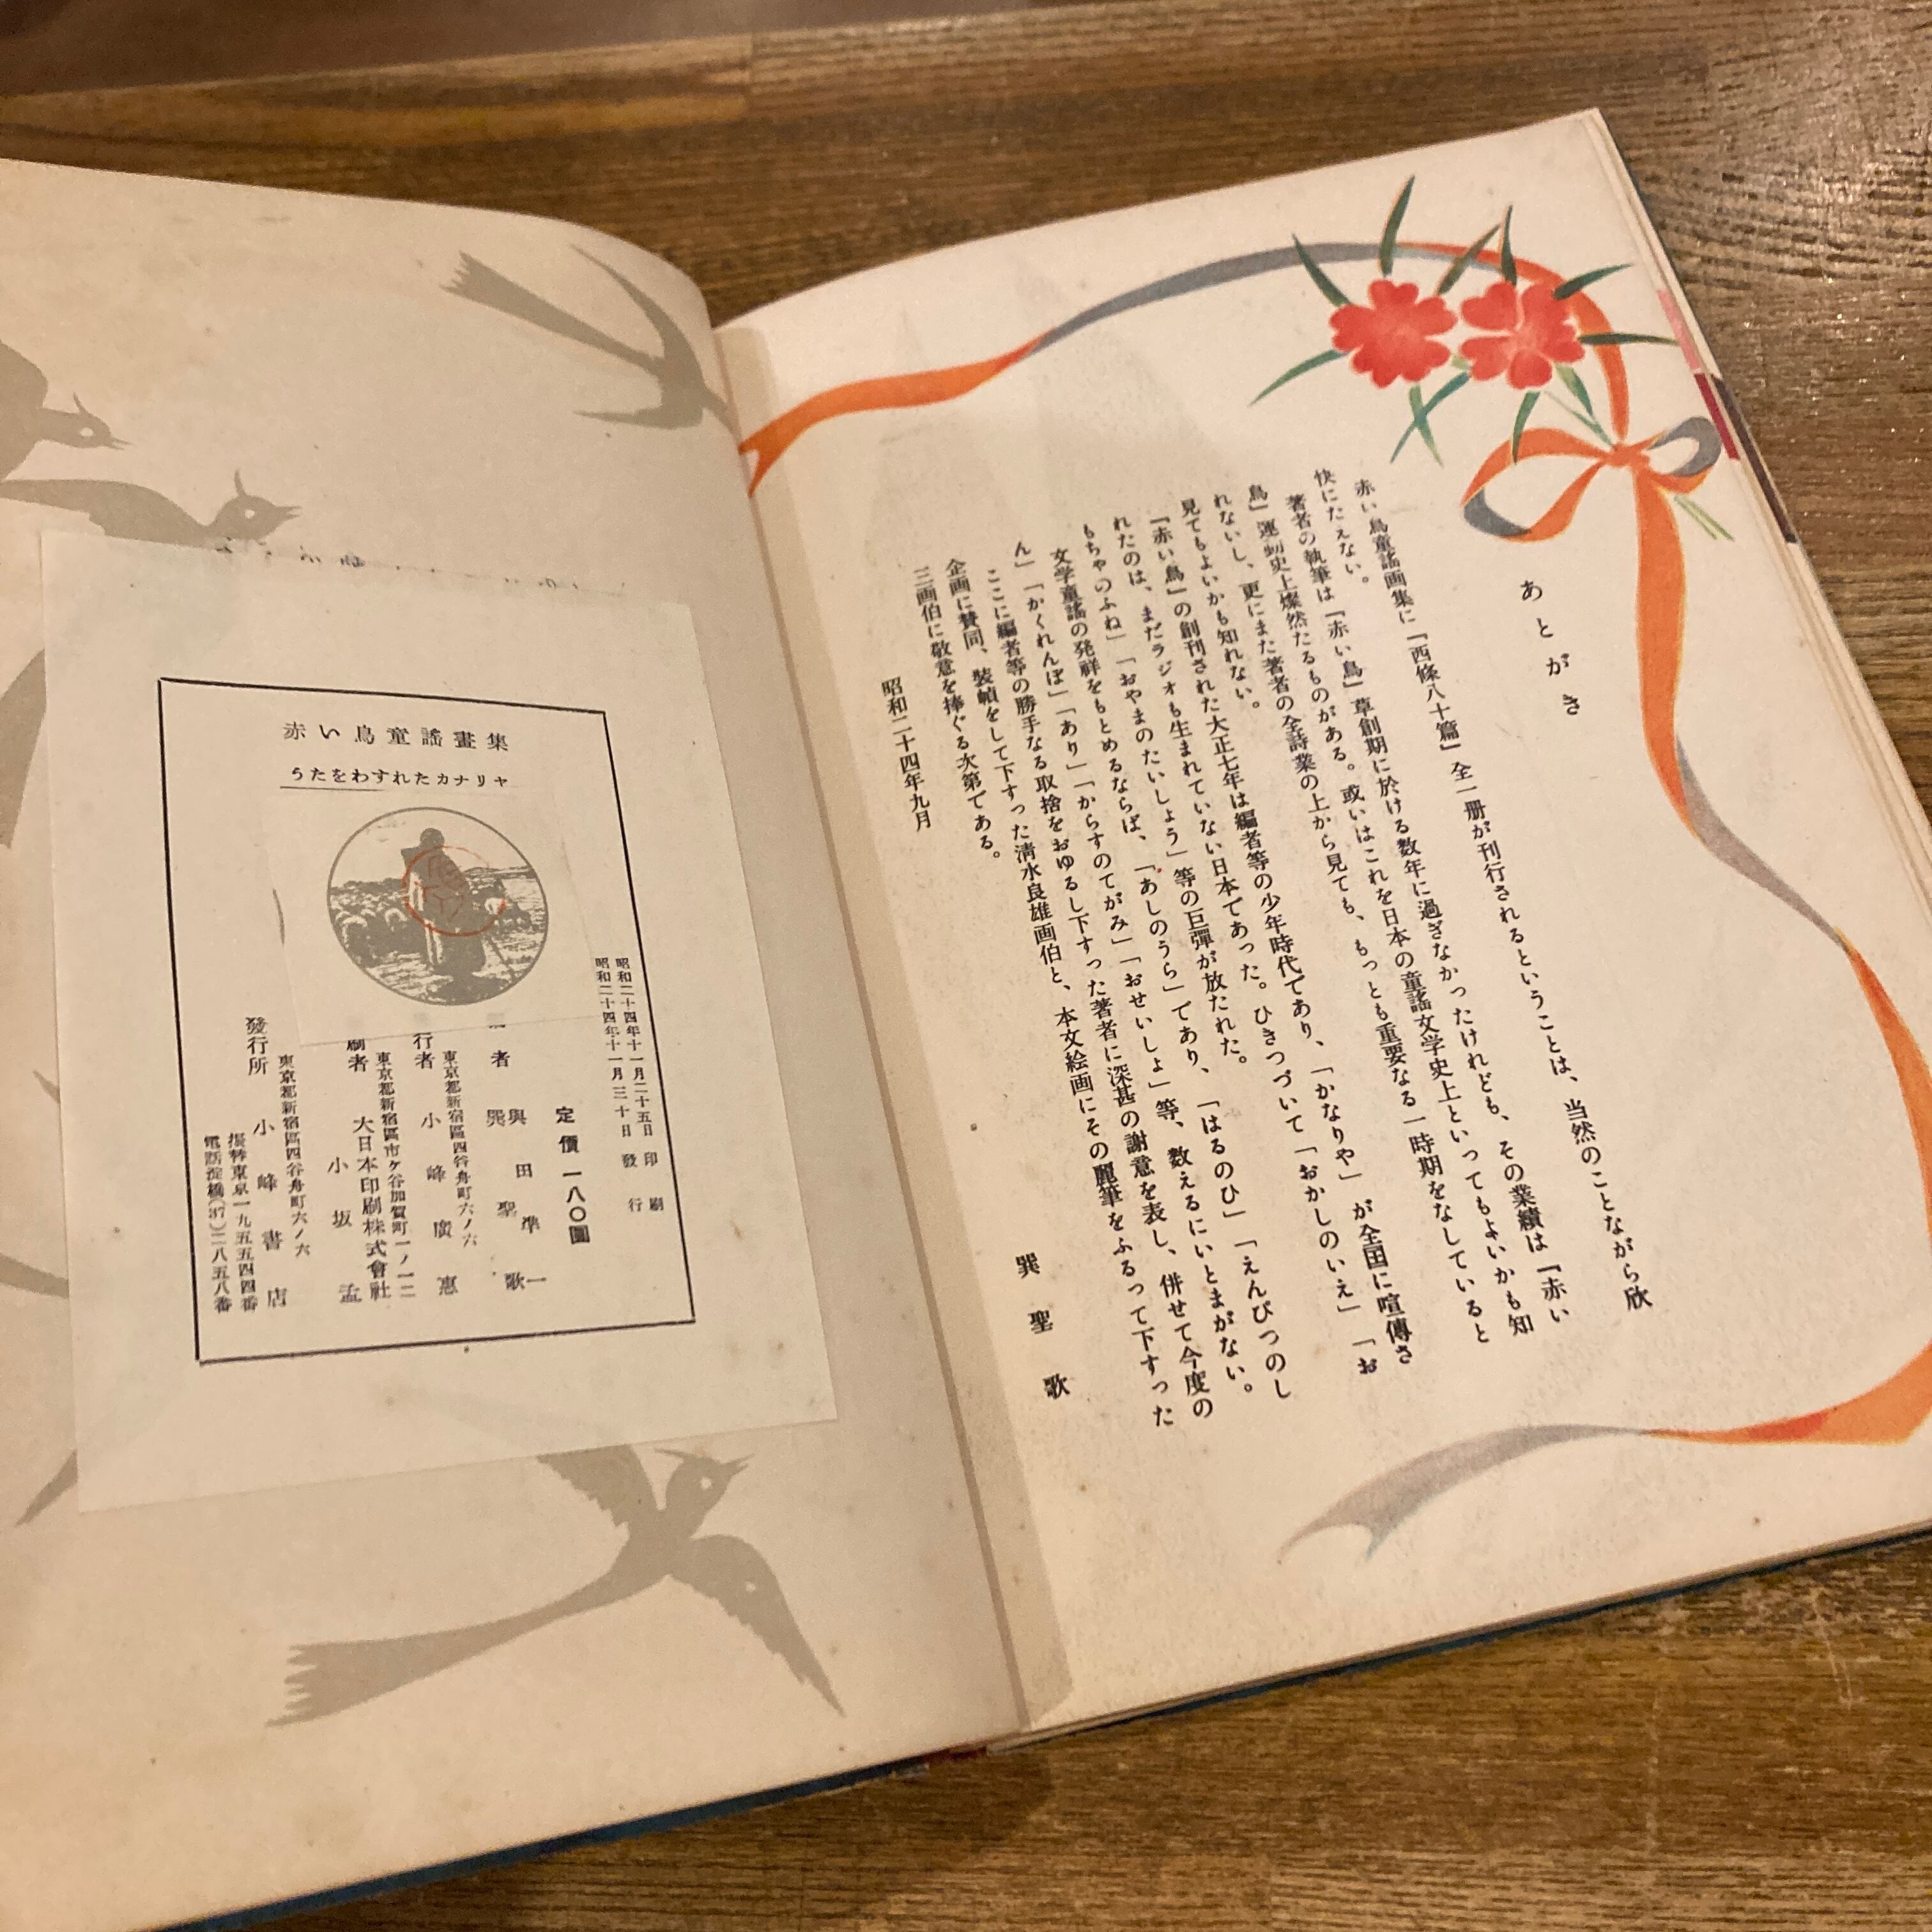 あとがき
赤い鳥童謡画集に『西條八十篇』全一册が刊行されるということは、当然のことながら欣
快にたえない。
著者の執筆は『赤い鳥』草創期に於ける数年に過ぎなかったけれども、その業績は『赤い
鳥』運動史上燦然たるものがある。或いはこれを日本の童謡文学史上といってもよいかも知
れないし、更にまた著者の全詩業の上から見ても、もっとも重要なる一時期をなしていると
見てもよいかも知れない。
『赤い鳥』の創刊された大正七年は編者等の少年時代であり、「かなりや」が全国に喧傳さ
れたのは、まだラジオも生まれていない日本であった。ひきつづいて「おかしのいえ」「お
もちゃのふね」「おやまのたいしょう」等の巨彈が放たれた。
文学童謡の発祥をもとめるならば、「あしのうら」であり、「はるのひ」「えんぴつのし
ん」「かくれんぼ」「あり」「からすのてがみ」「おせいしょ」等、数えるにいとまがない。
ここに編者等の勝手なる取捨をおゆるし下すった著者に深甚の謝意を表し、併せて今度の
企画に賛同、装幀をして下すった清水良雄画伯と、本文絵画にその麗筆をふるって下すった
三画伯に敬意を捧ぐる次第である。
昭和二十四年九月
巽聖歌
赤い鳥童謠畫集
うたをわすれたカナリヤ
昭和二十四年十一月二十五日印刷
昭和二十四年十一月三十日發行
定價一八〇圓
者 與田準一
巽聖歌
東京都新宿區四谷舟町六ノ六
行者 小峰廣惠
東京都新宿區市ヶ谷加賀町一ノ一二
大日本印刷株式會社
刷者 小坂孟
東京都新宿區四谷舟町六ノ六
發行所 小峰書店
振替東京一九五五四四番
電話淀橋(37)二八五八番